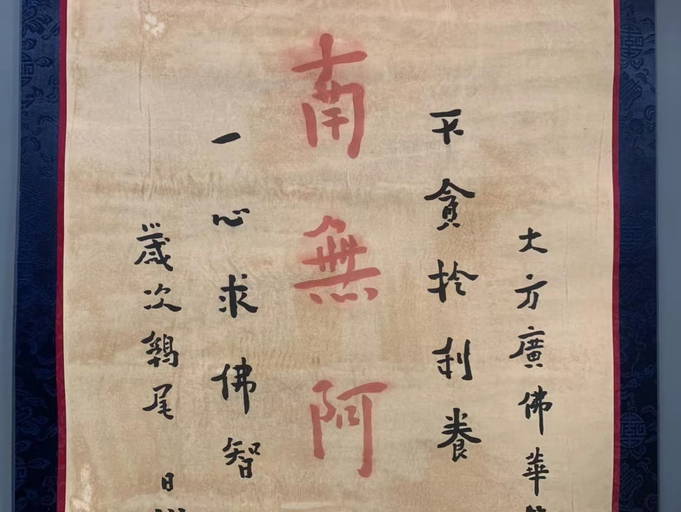 大方廣佛華
不貪於利養
南無阿
一心求佛智
歲次鶉尾 日